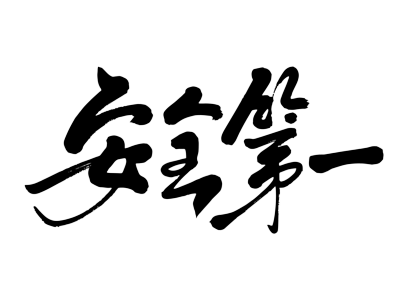 安全第一